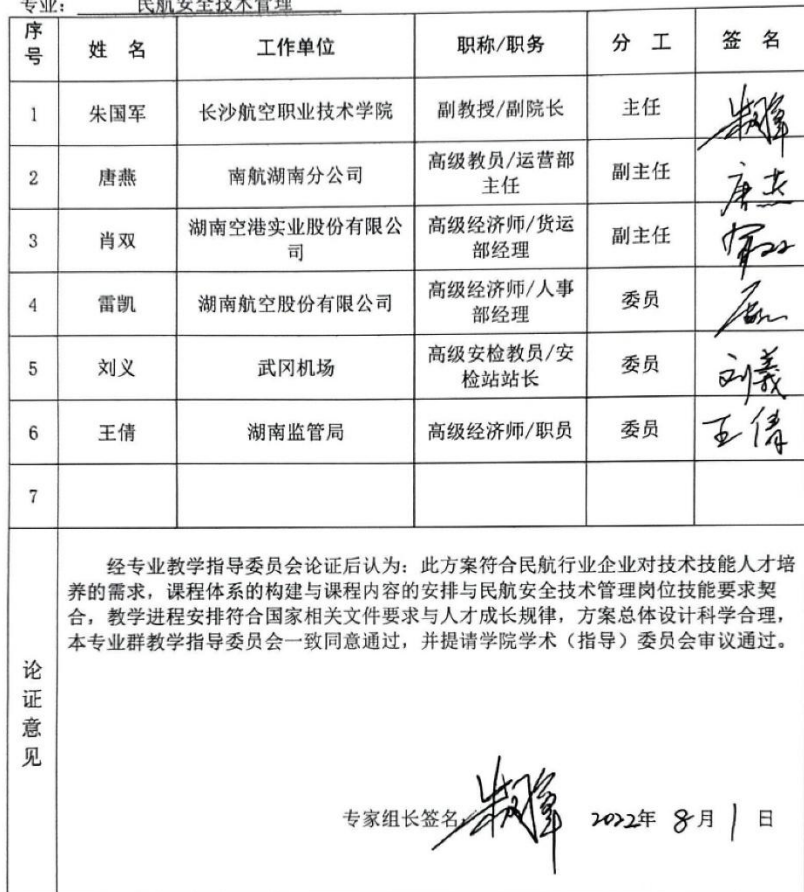 专业： 民航安全技术管理
序号 姓 名 工作单位 职称/职务 分 工 签 名
1 朱国军 长沙航空职业技术学院 副教授/副院长 主任 朱国军
2 唐燕 南航湖南分公司 高级教员/运营部主任 副主任
3 肖双 湖南空港实业股份有限公司 高级经济师/货运部经理 副主任 肖双
4 雷凯 湖南航空股份有限公司 高级经济师/人事部经理 委员
5 刘义 武冈机场 高级安检教员/安检站站长 委员 刘義
6 王倩 湖南监管局 高级经济师/职员 委员 王倩
7
论证意见
经专业教学指导委员会论证后认为：此方案符合民航行业企业对技术技能人才培
养的需求，课程体系的构建与课程内容的安排与民航安全技术管理岗位技能要求契
合，教学进程安排符合国家相关文件要求与人才成长规律，方案总体设计科学合理，
本专业群教学指导委员会一致同意通过，并提请学院学术（指导）委员会审议通过。
专家组长签名 朱国军 2022年 8月 1 日